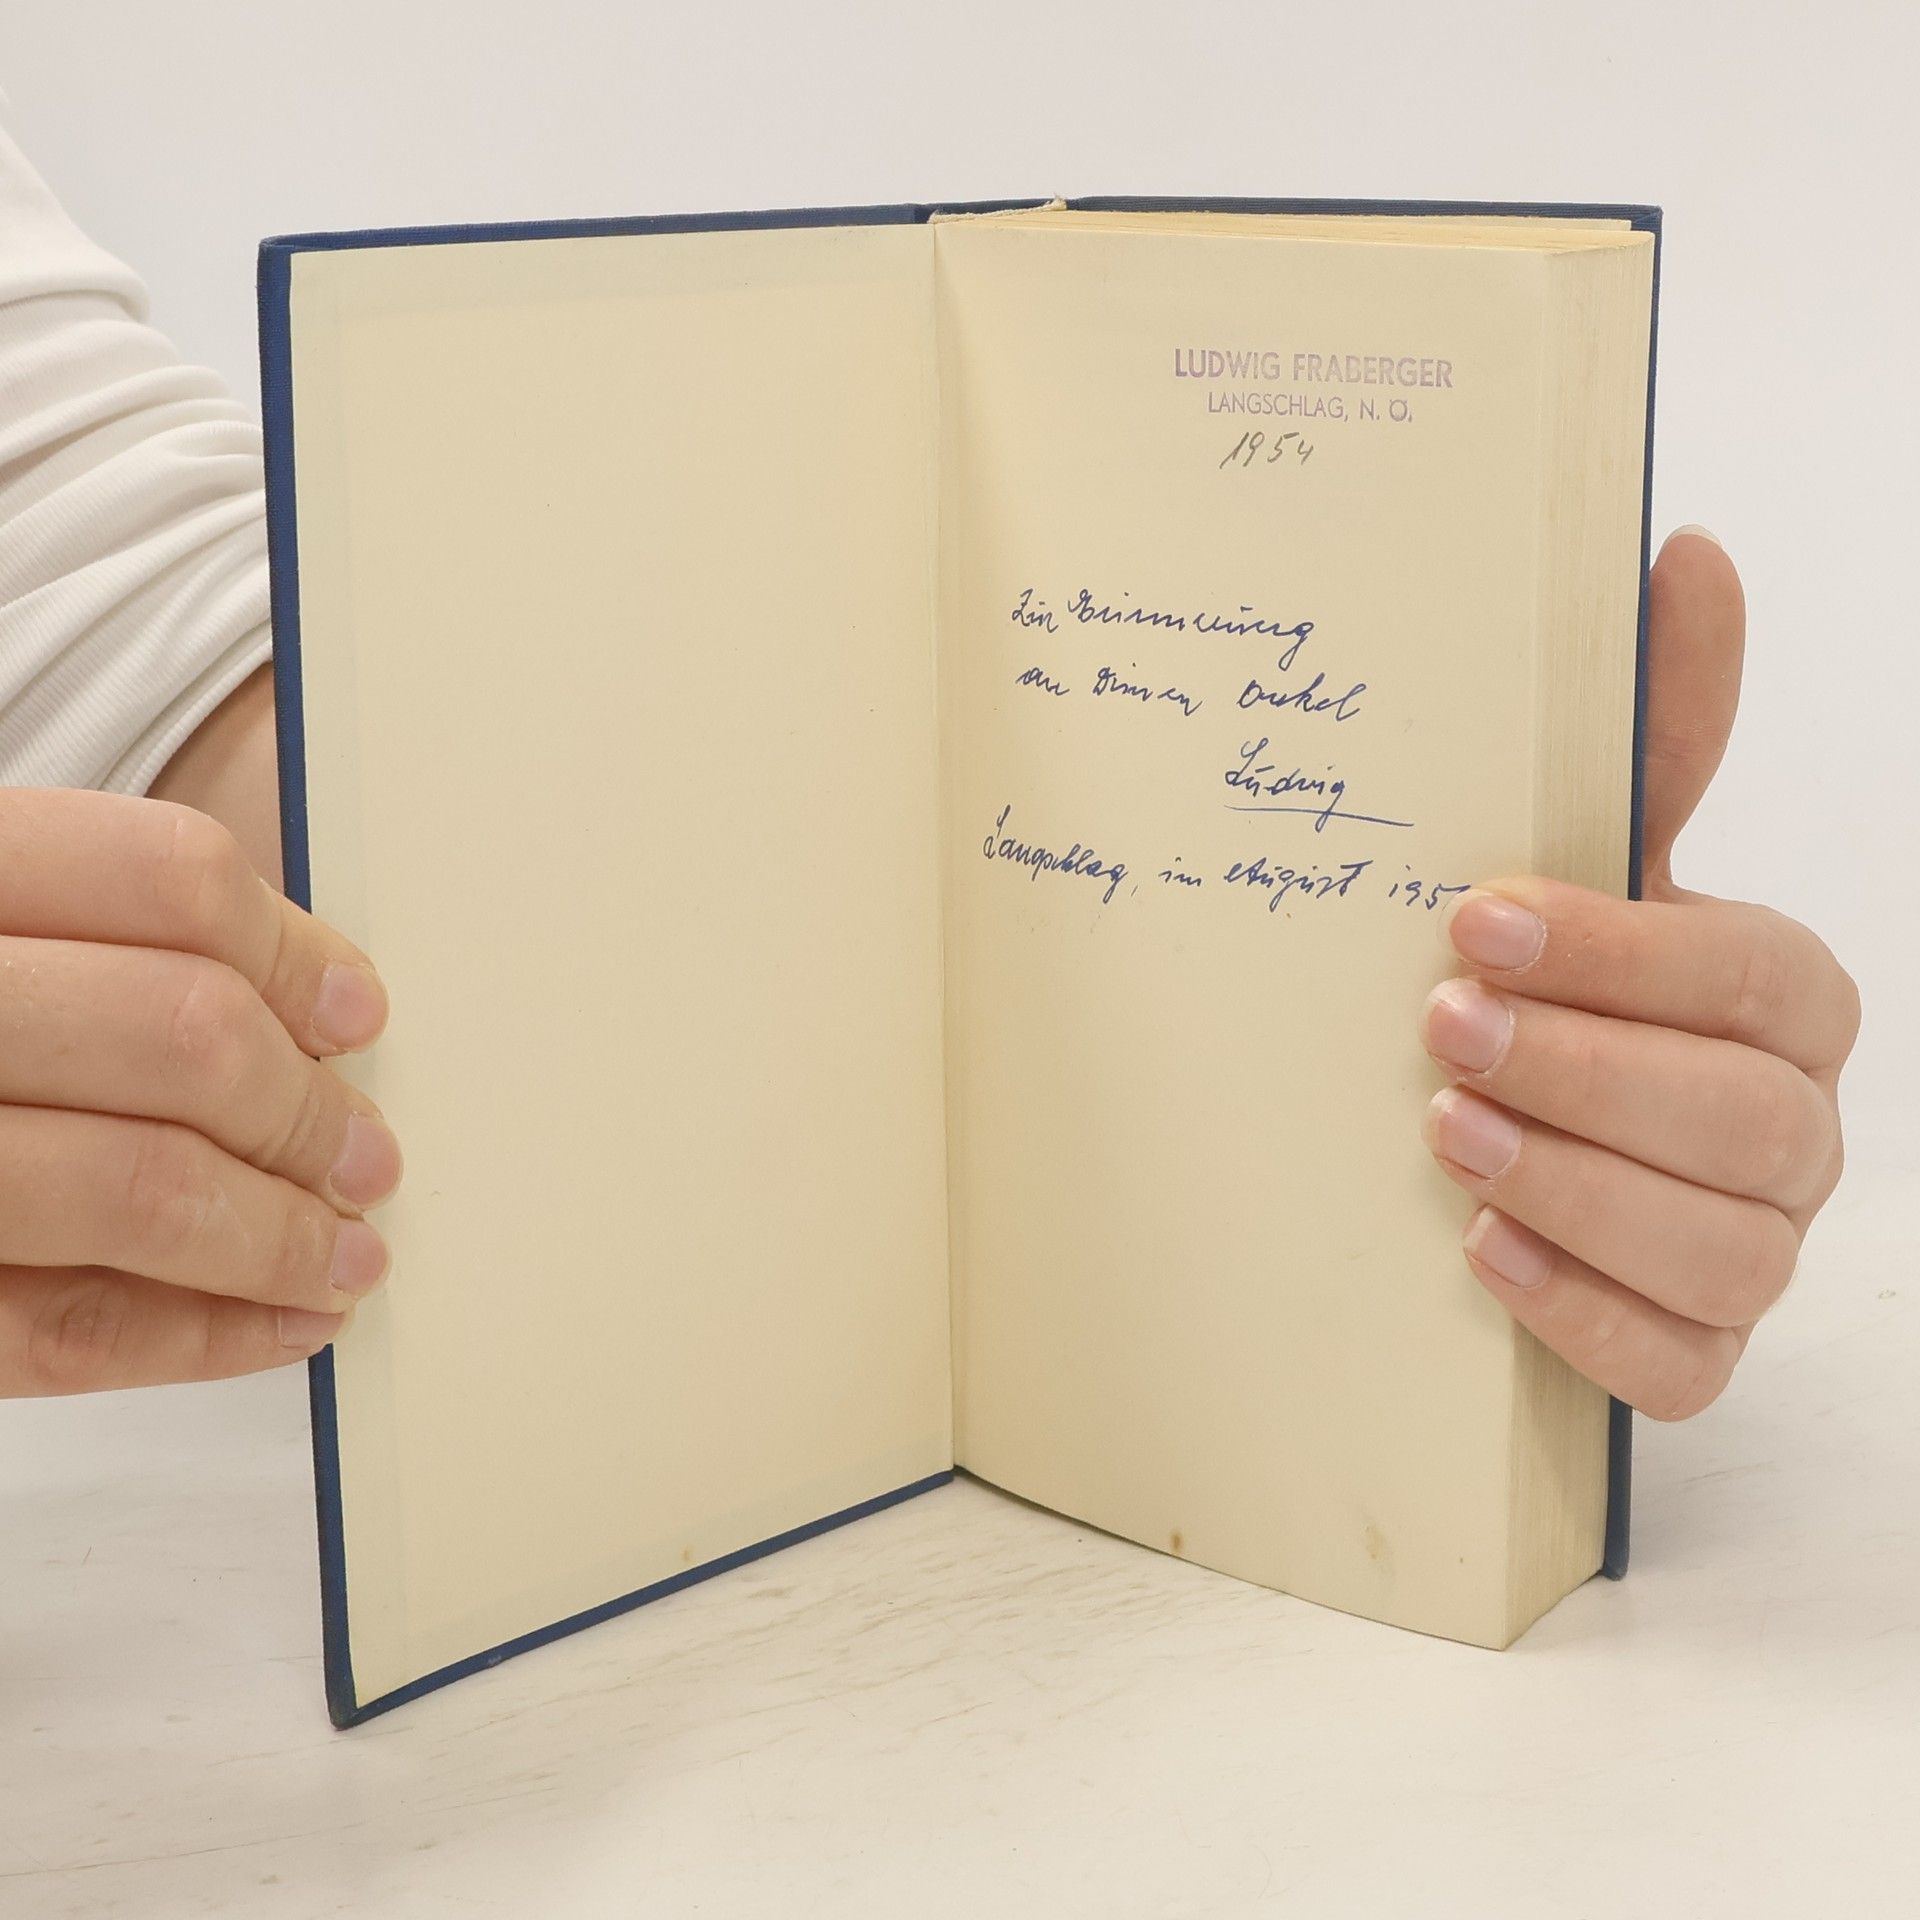 LUDWIG FRABERGER
LANGSCHLAG, N. Ö.
1954
Zur Erinnerung
an Deinen Onkel
Ludwig
Langschlag, im August 195